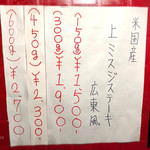 米国産
上ミスジステーキ
広東風
(150g)¥1,500-
(300g)¥1,900-
(450g)¥2,300-
(600g)¥2,700-